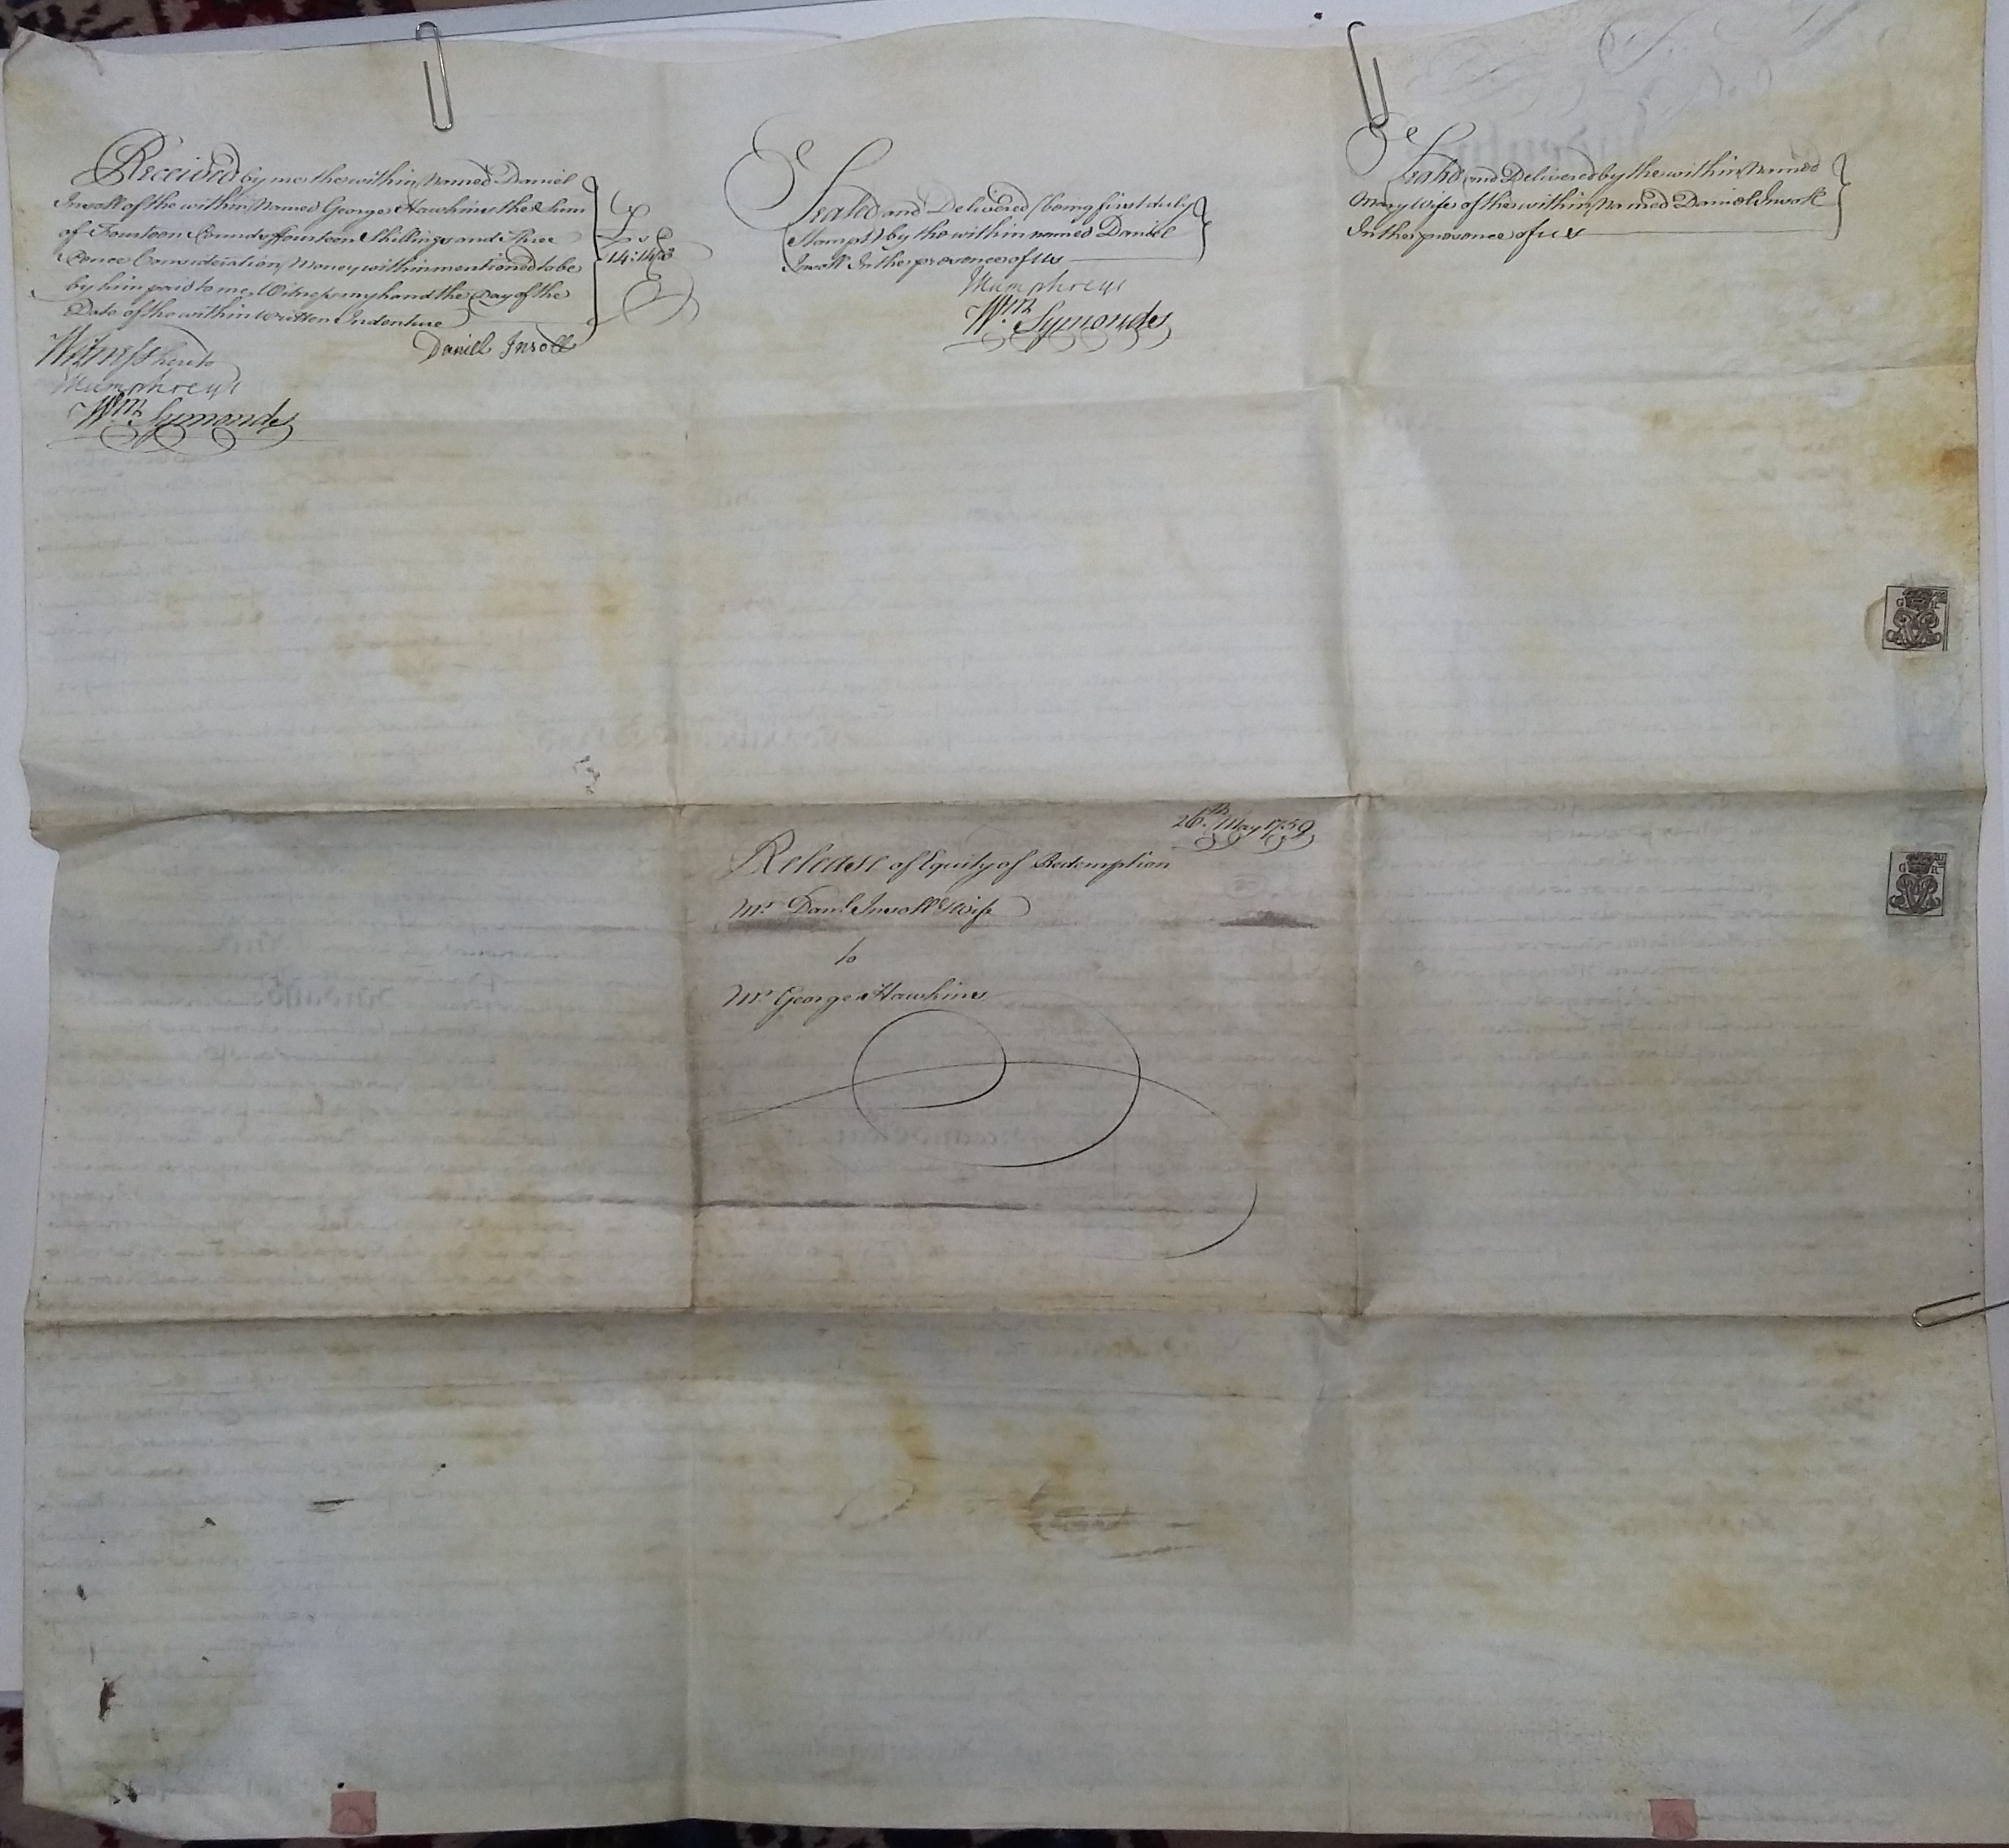 Received by me the within Named Daniel
Insoll of the within Named George Hawkins the Sum
of Fourteen Pounds fourteen Shillings and Three
Pence Consideration Money within mentioned to be
by him paid to me Witness my hand the Day of the
Date of the within written Indenture
£ s d
14:14:3
Daniel Insoll
Witness hereto
Humphreys
Wm Symonds
Sealed and Delivered (being first duly
Stampt) by the within named Daniel
Insoll In the presence of us
Humphreys
Wm Symonds
Sealed and Delivered by the within Named
Mary Wife of the within Named Daniel Insoll
In the presence of us
26th May 1759
Release of Equity of Redemption
Mr Danl Insoll & Wife
to
Mr George Hawkins
G R
G R